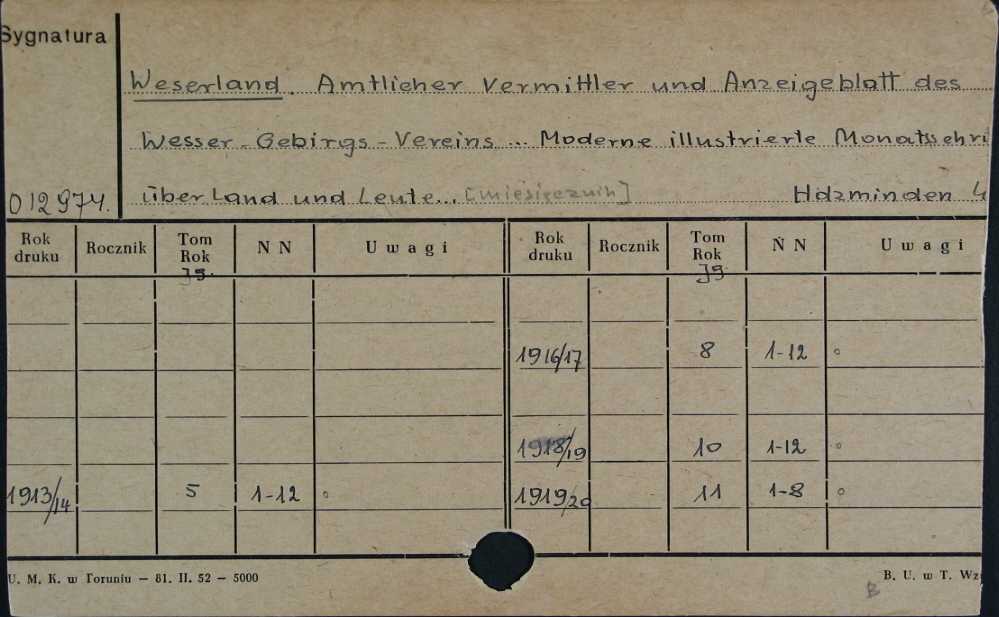 Sygnatura
Weserland. Amtlicher Vermittler und Anzeigeblatt des
Wesser-Gebirgs-Vereins ... Moderne illustrierte Monatsschri
012974. über Land und Leute... [miesięcznik] Holzminden 4
Rok druku Rocznik Tom Rok Jg. N N Uwagi Rok druku Rocznik Tom Rok Jg. N N Uwagi
1916/17 8 1-12
1918/19 10 1-12
1913/14 5 1-12 1919/20 11 1-8
U. M. K. w Toruniu — 81. II. 52 — 5000 B. U. w T. Wz
B